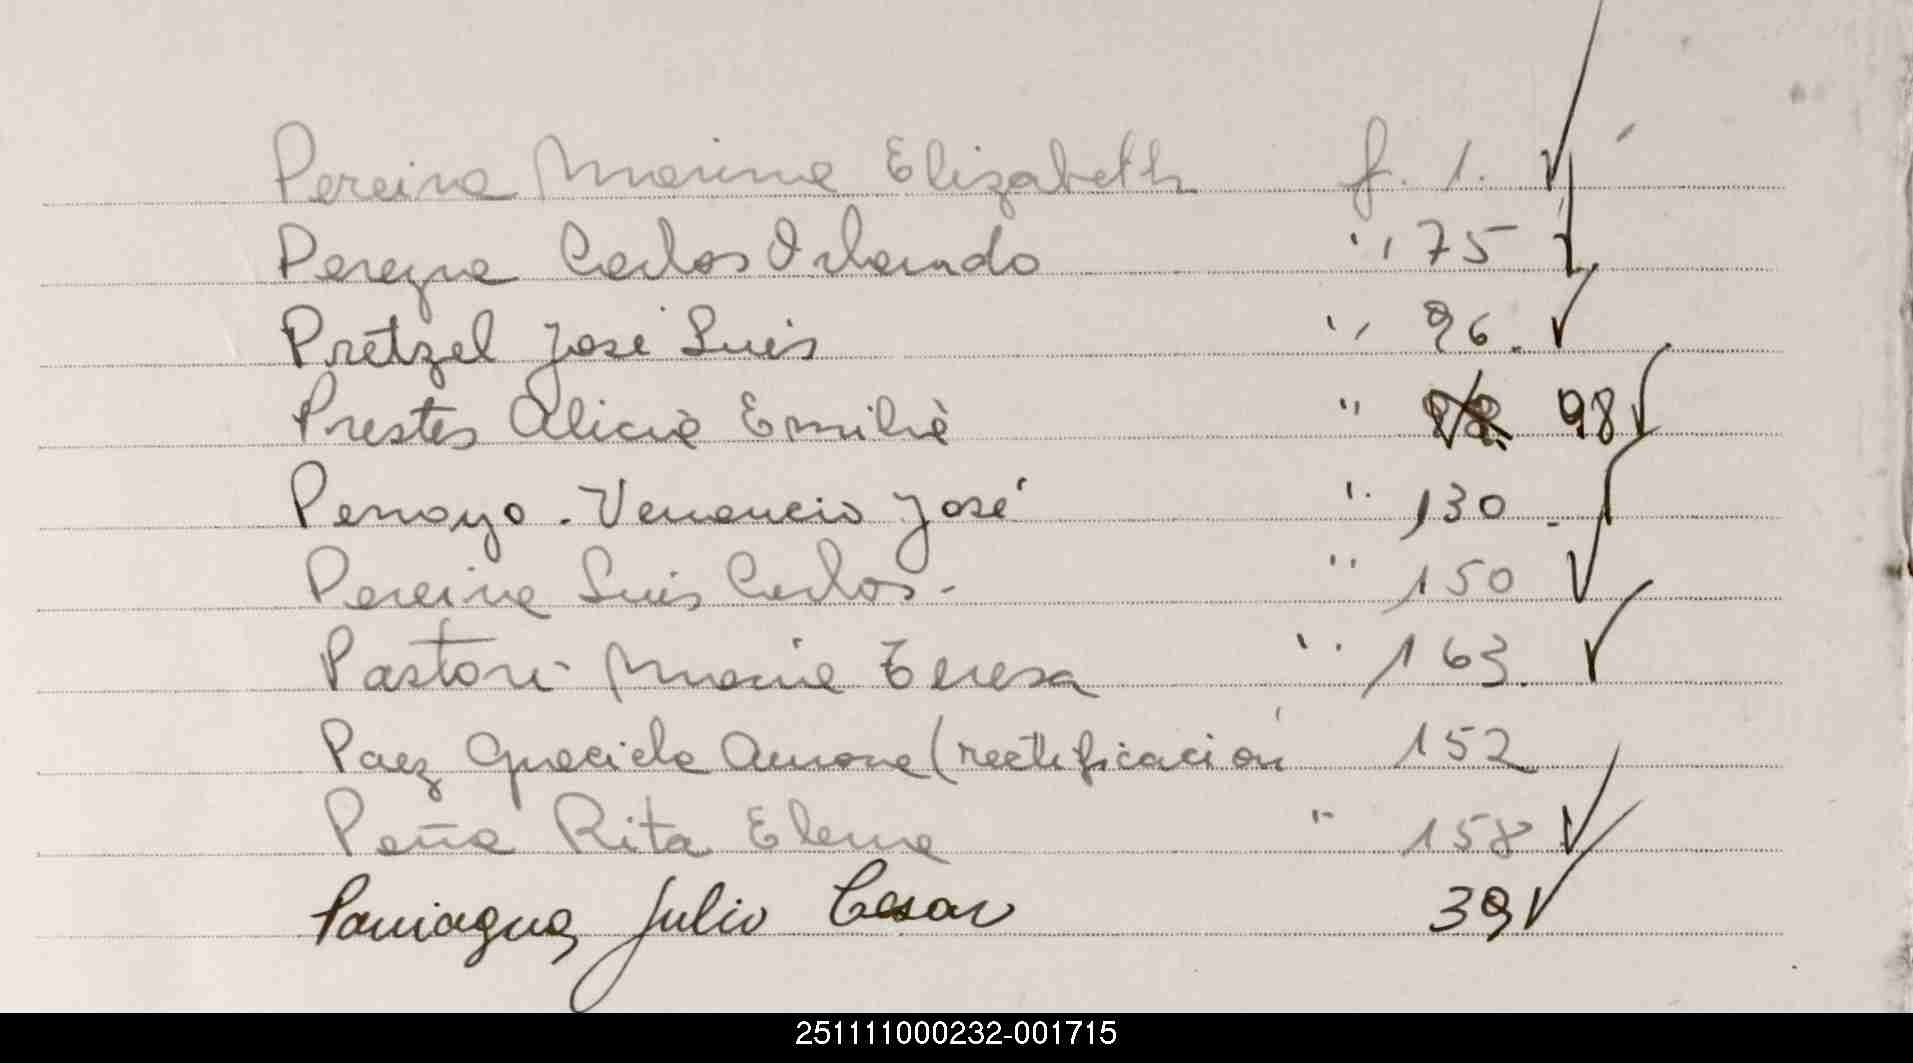 Pereira Marina Elizabeth f. 1.
Pereyra Carlos Orlando " 75
Pretzel José Luis " 96.
Prestes Alicia Emilia " 98
Penayo - Venancio José " 130 -
Pereira Luis Carlos - " 150
Pastori María Teresa " 163.
Paez Graciela (rectificación 152
Peña Rita Elena " 158
Paniagua Julio Cesar 39
251111000232-001715